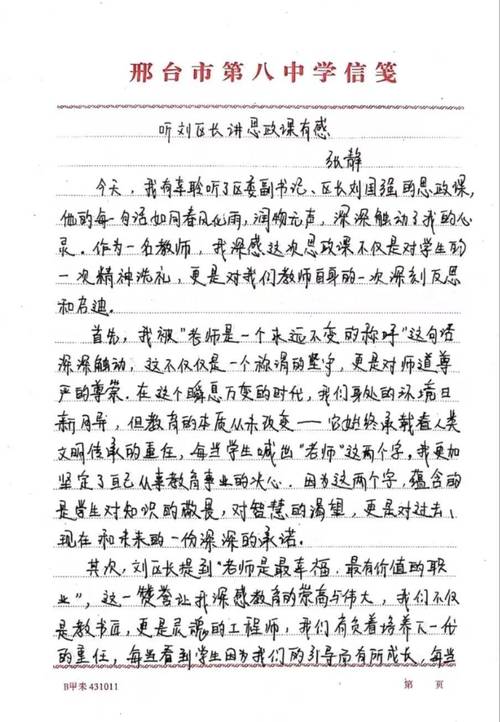 邢台市第八中学信笺
听刘区长讲思政课有感
张静
今天，我有幸聆听了区委副书记、区长刘国强的思政课，
他的每一句话如同春风化雨，润物无声，深深触动了我的心
灵。作为一名教师，我深感这次思政课不仅是对学生的
一次精神洗礼，更是对我们教师自身的一次深刻反思
和启迪。
首先，我被“老师是一个永远不变的称呼”这句话
深深触动，这不仅仅是一个称谓的坚守，更是对师道尊
严的尊崇。在这个瞬息万变的时代，我们身处的环境日
新月异，但教育的本质从未改变——它始终承载着人类
文明传承的重任，每当学生喊出“老师”这两个字，我更加
坚定了自己从事教育事业的决心。因为这两个字，蕴含的
是学生对知识的敬畏，对智慧的渴望，更是对过去、
现在和未来的一份深深的承诺。
其次，刘区长提到“老师是最幸福、最有价值的职
业”，这一赞誉让我深感教育的崇高与伟大，我们不仅
是教书匠，更是灵魂的工程师，我们肩负着培养下一代
的重任，每当看到学生因为我们的引导而有所成长，每当
B甲未431011 第 页